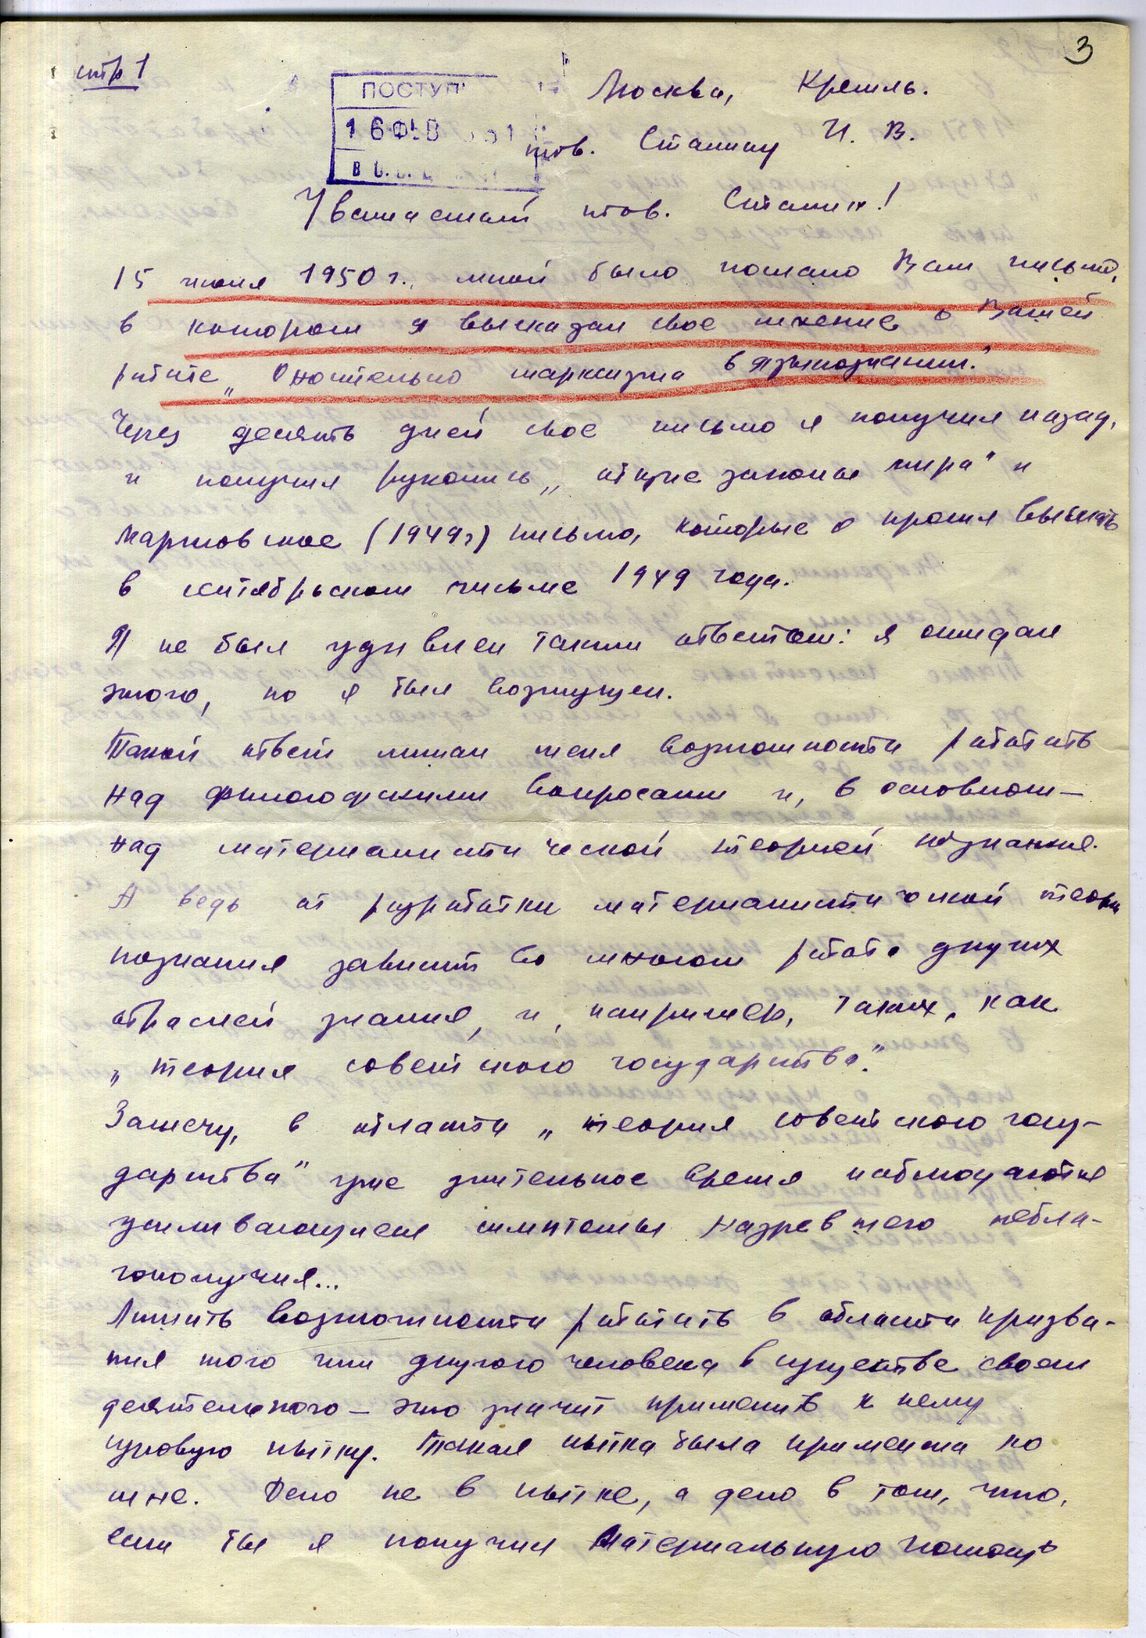 стр 1
3
ПОСТУП
16 ФЕВ
Москва, Кремль.
тов. Сталину И. В.
Уважаемый тов. Сталин!
15 июля 1950 г. мной было послано Вам письмо,
в котором я высказал свое мнение о Вашей
работе „Относительно марксизма в языкознании."
Через десять дней свое письмо я получил назад,
и получил рукопись „общие законы мира" и
мартовское (1949 г) письмо, которые я просил выслать
в октябрьском письме 1949 года.
Я не был удивлен таким ответом: я ожидал
этого, но я был возмущен.
Такой ответ лишал меня возможности работать
над философскими вопросами и, в основном —
над материалистической теорией познания.
А ведь от разработки материалистической теории
познания зависит во многом работа других
отраслей знания, и, например, таких, как
„теория советского государства".
Замечу, в области „теория советского госу-
дарства" уже длительное время наблюдаются
усиливающиеся симптомы назревшего небла-
гополучия...
Лишить возможности работать в области призва-
ния того или другого человека в существе своем
деятельного — это значит применить к нему
суровую пытку. Такая пытка была применена ко
мне. Дело не в пытке, а дело в том, что,
если бы я получил материальную помощь